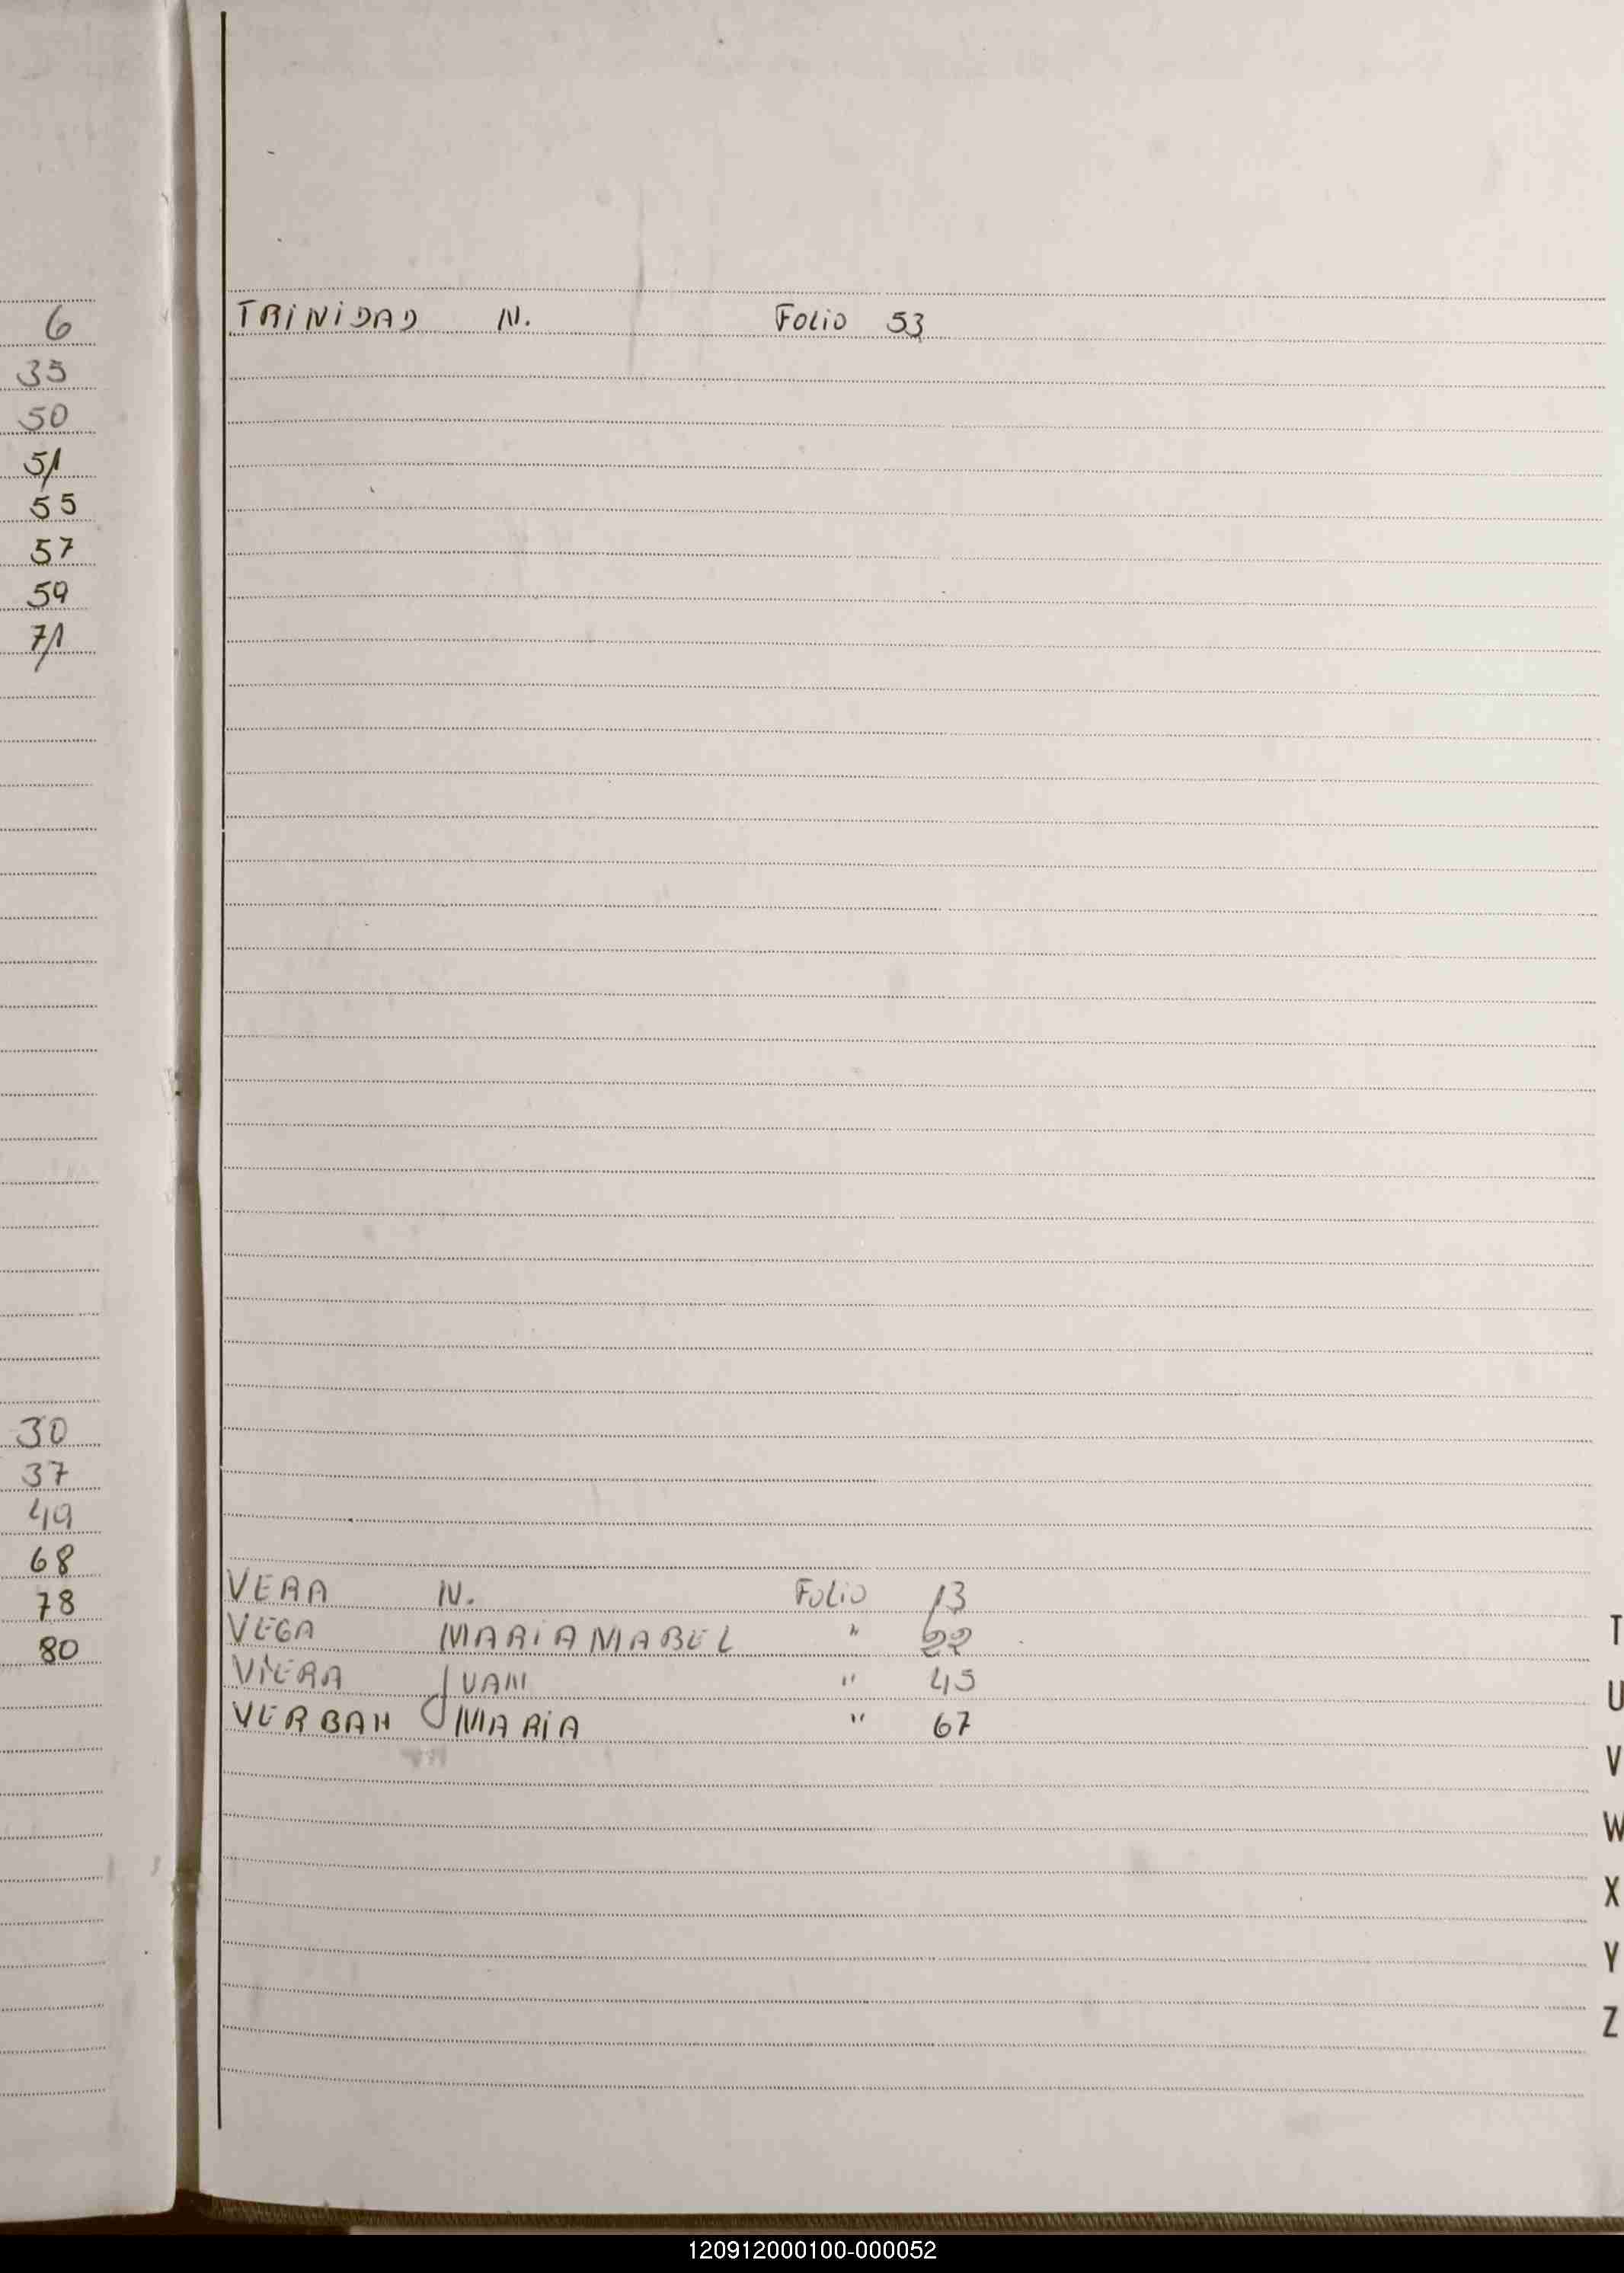 6
35
50
51
55
57
59
71
30
37
49
68
78
80
TRINIDAD N. Folio 53
VERA N. Folio 13
VEGA MARIA MABEL " 22
VIERA JUAN " 45
VERBAH MARIA " 67
T
U
V
W
X
Y
Z
120912000100-000052